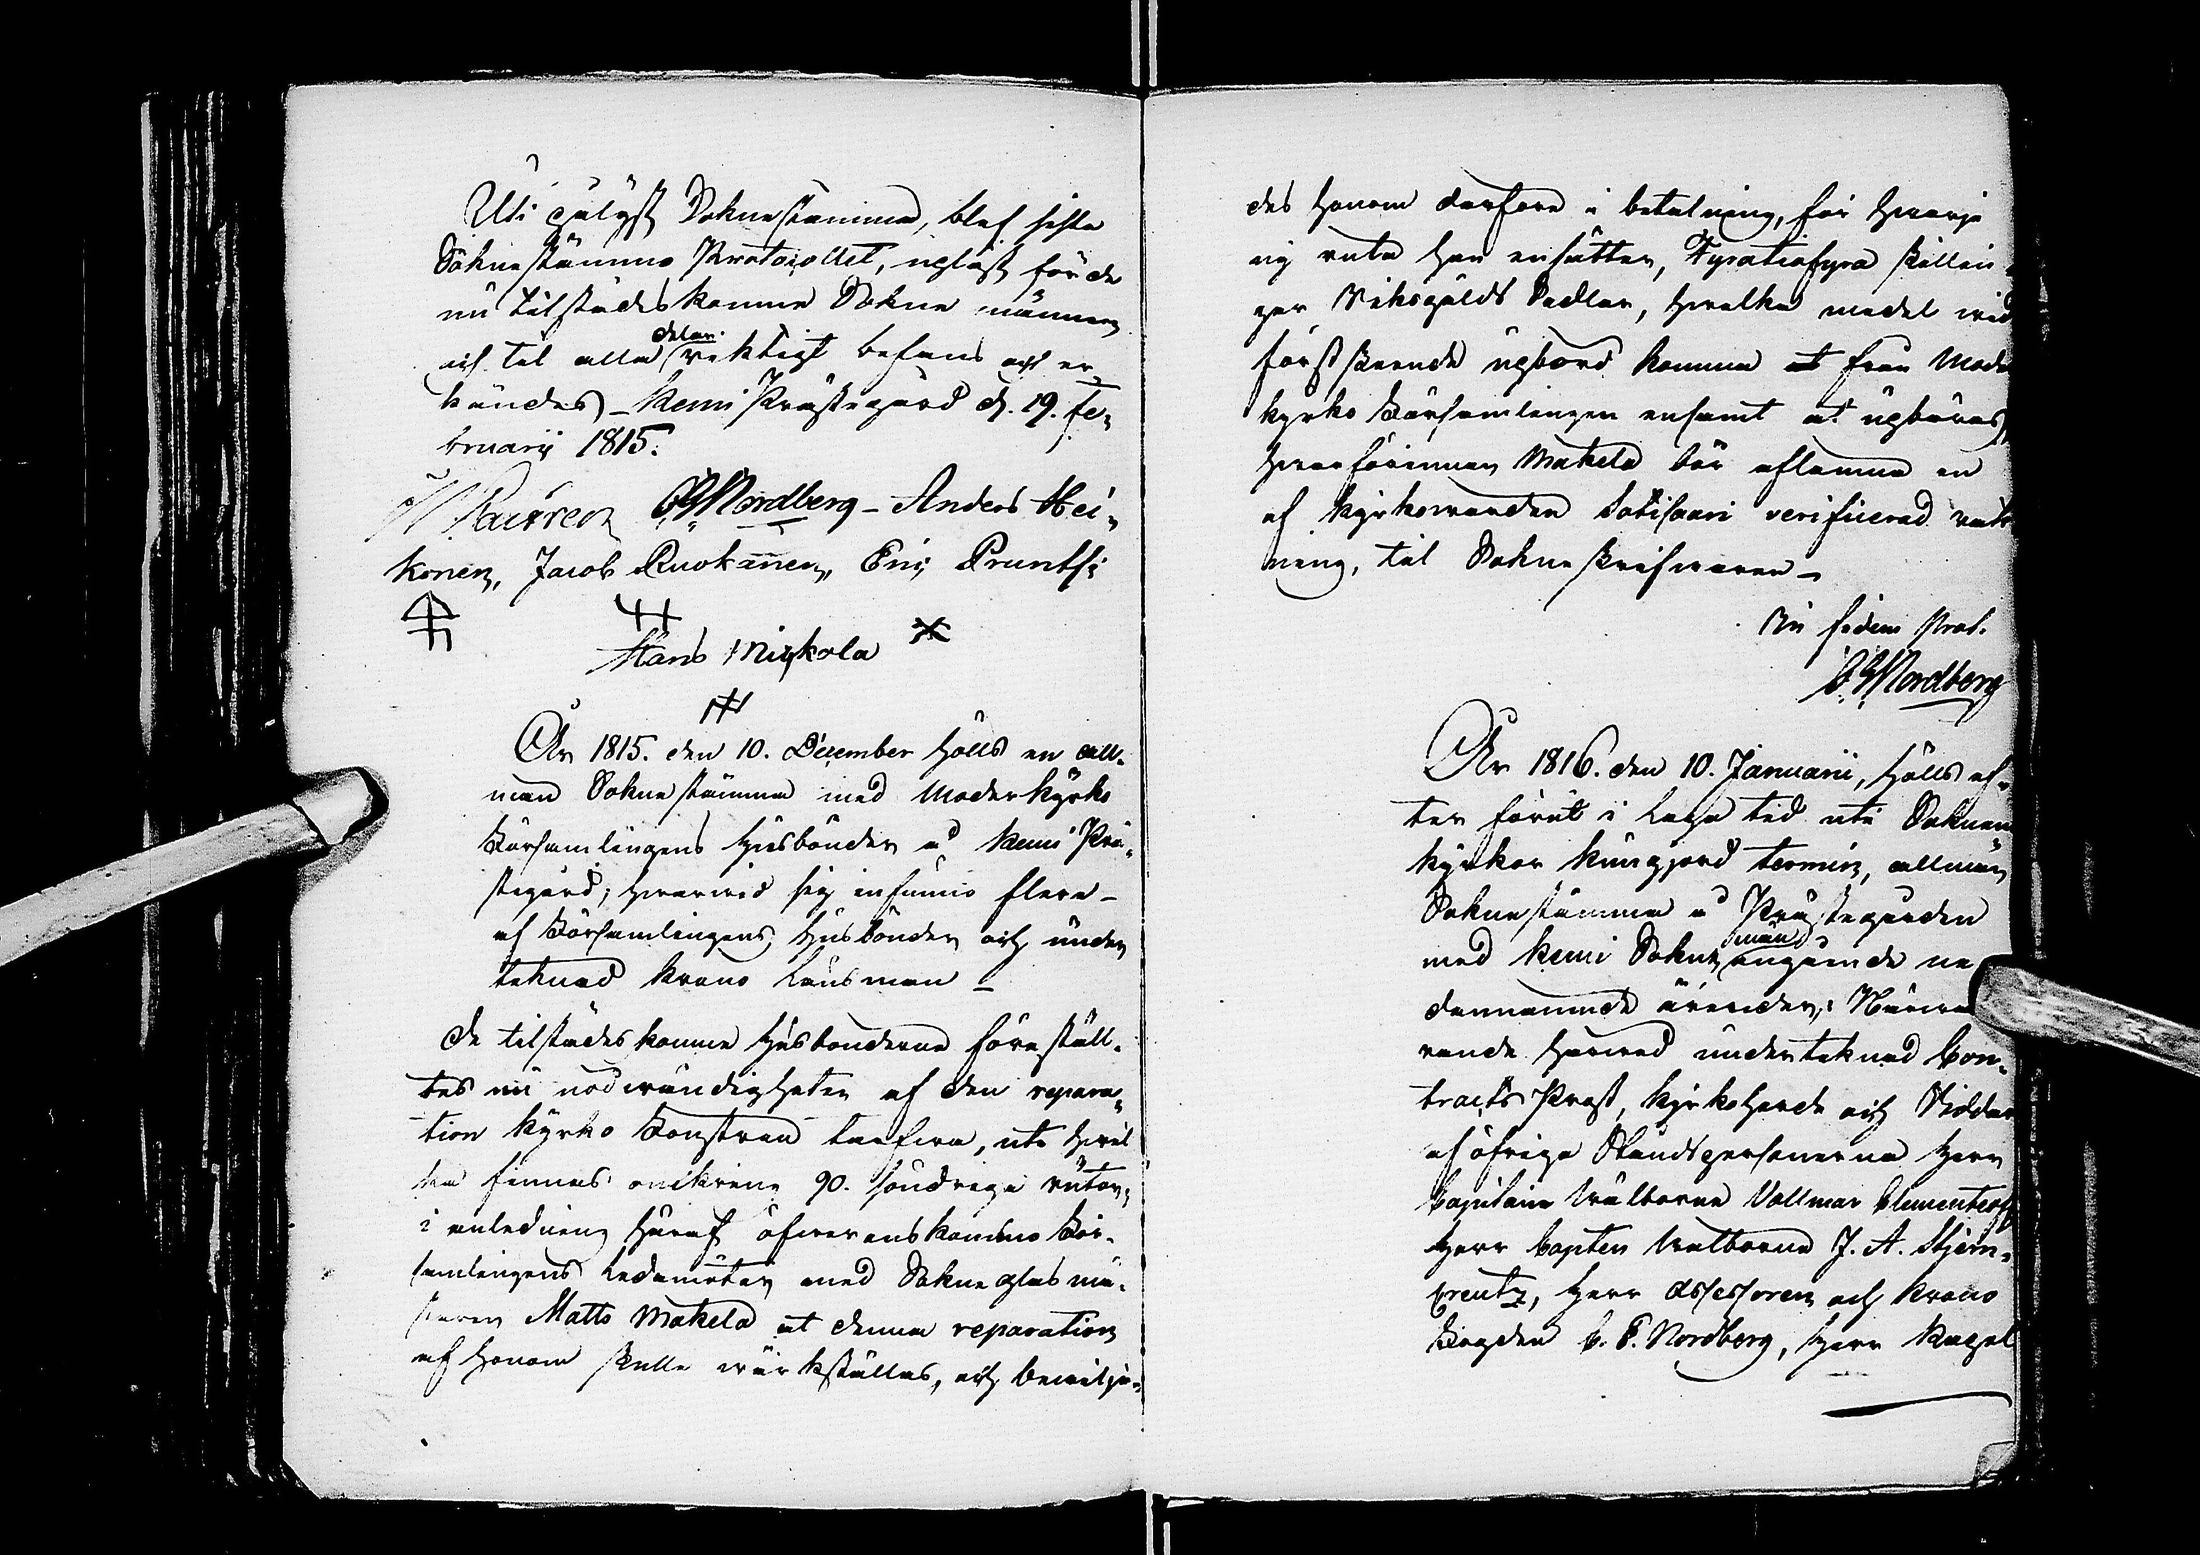 Uti pålyst Sokne stämma, blef sista
Sokne stämmo Protocollet, upläst för de
nu tilstädes komne Sokne männen
och til alla delar riktigt befans och er¬
kändes – Kemi Prästegård d. 19. Fe¬
bruarij 1815.
Nordberg – Anders Hei¬
konen, Jacob Ruokanen, Eric Pruntsi
Hans Niskola
År 1815. den 10. December hölls en all¬
män Sokne stämma med Moder Kyrko
Församlingens Husbönder å Kemi Prä¬
stegård; hwarwid sig infunno flera –
af Församlingens Husbönder och under
teknad Krono Länsman –
De tilstädes komne Husbönderne föreställ¬
tes nu nödwändigheten af den repara¬
tion Kyrko Fönstren tarfwa, uti hwil
ka finnas omkring 90. söndriga rutor,
i anledning häraf öfwerenskommo För¬
samlingens Ledamöter med Sokne glas mä¬
staren Matts Makela at denna reparation
af honom skulle wärkställas, och bewilja¬
des honom derfore i betalning, för hwarje
ny ruta han insätter, Fyratiofyra skillin¬
gar Riksgälds Sedlar, hwilka medel wid
först skeende upbörd komma at från Moder
Kyrko Församlingen ensamt at upbäras,
hwarförinnan Makela bör aflemna en
af Kyrkowärden Sotisaari verificerad räk
ning, til Sokne skrifwaren –
In fidem Prot.
Nordberg
År 1816. den 10. Januarii, hölls ef¬
ter förut i Laga tid uti Soknens
Kyrkor kungjord termin, allmän
Sokne stämma å Prästegården
med Kemi Sokne män angående ne
dannamnde ärenden; Närwa
rande harwid underteknad Con¬
tracts Prost, Kyrkoherde och Riddare
af öfriga Ståndspersonerne Herr
Capitaine Wälborne Vollmar Clementeoff
Herr Capten Walborne J. A. Stjern¬
Creutz, Herr Assessoren och Krono
Fogden C. E. Nordberg, Herr Kapel